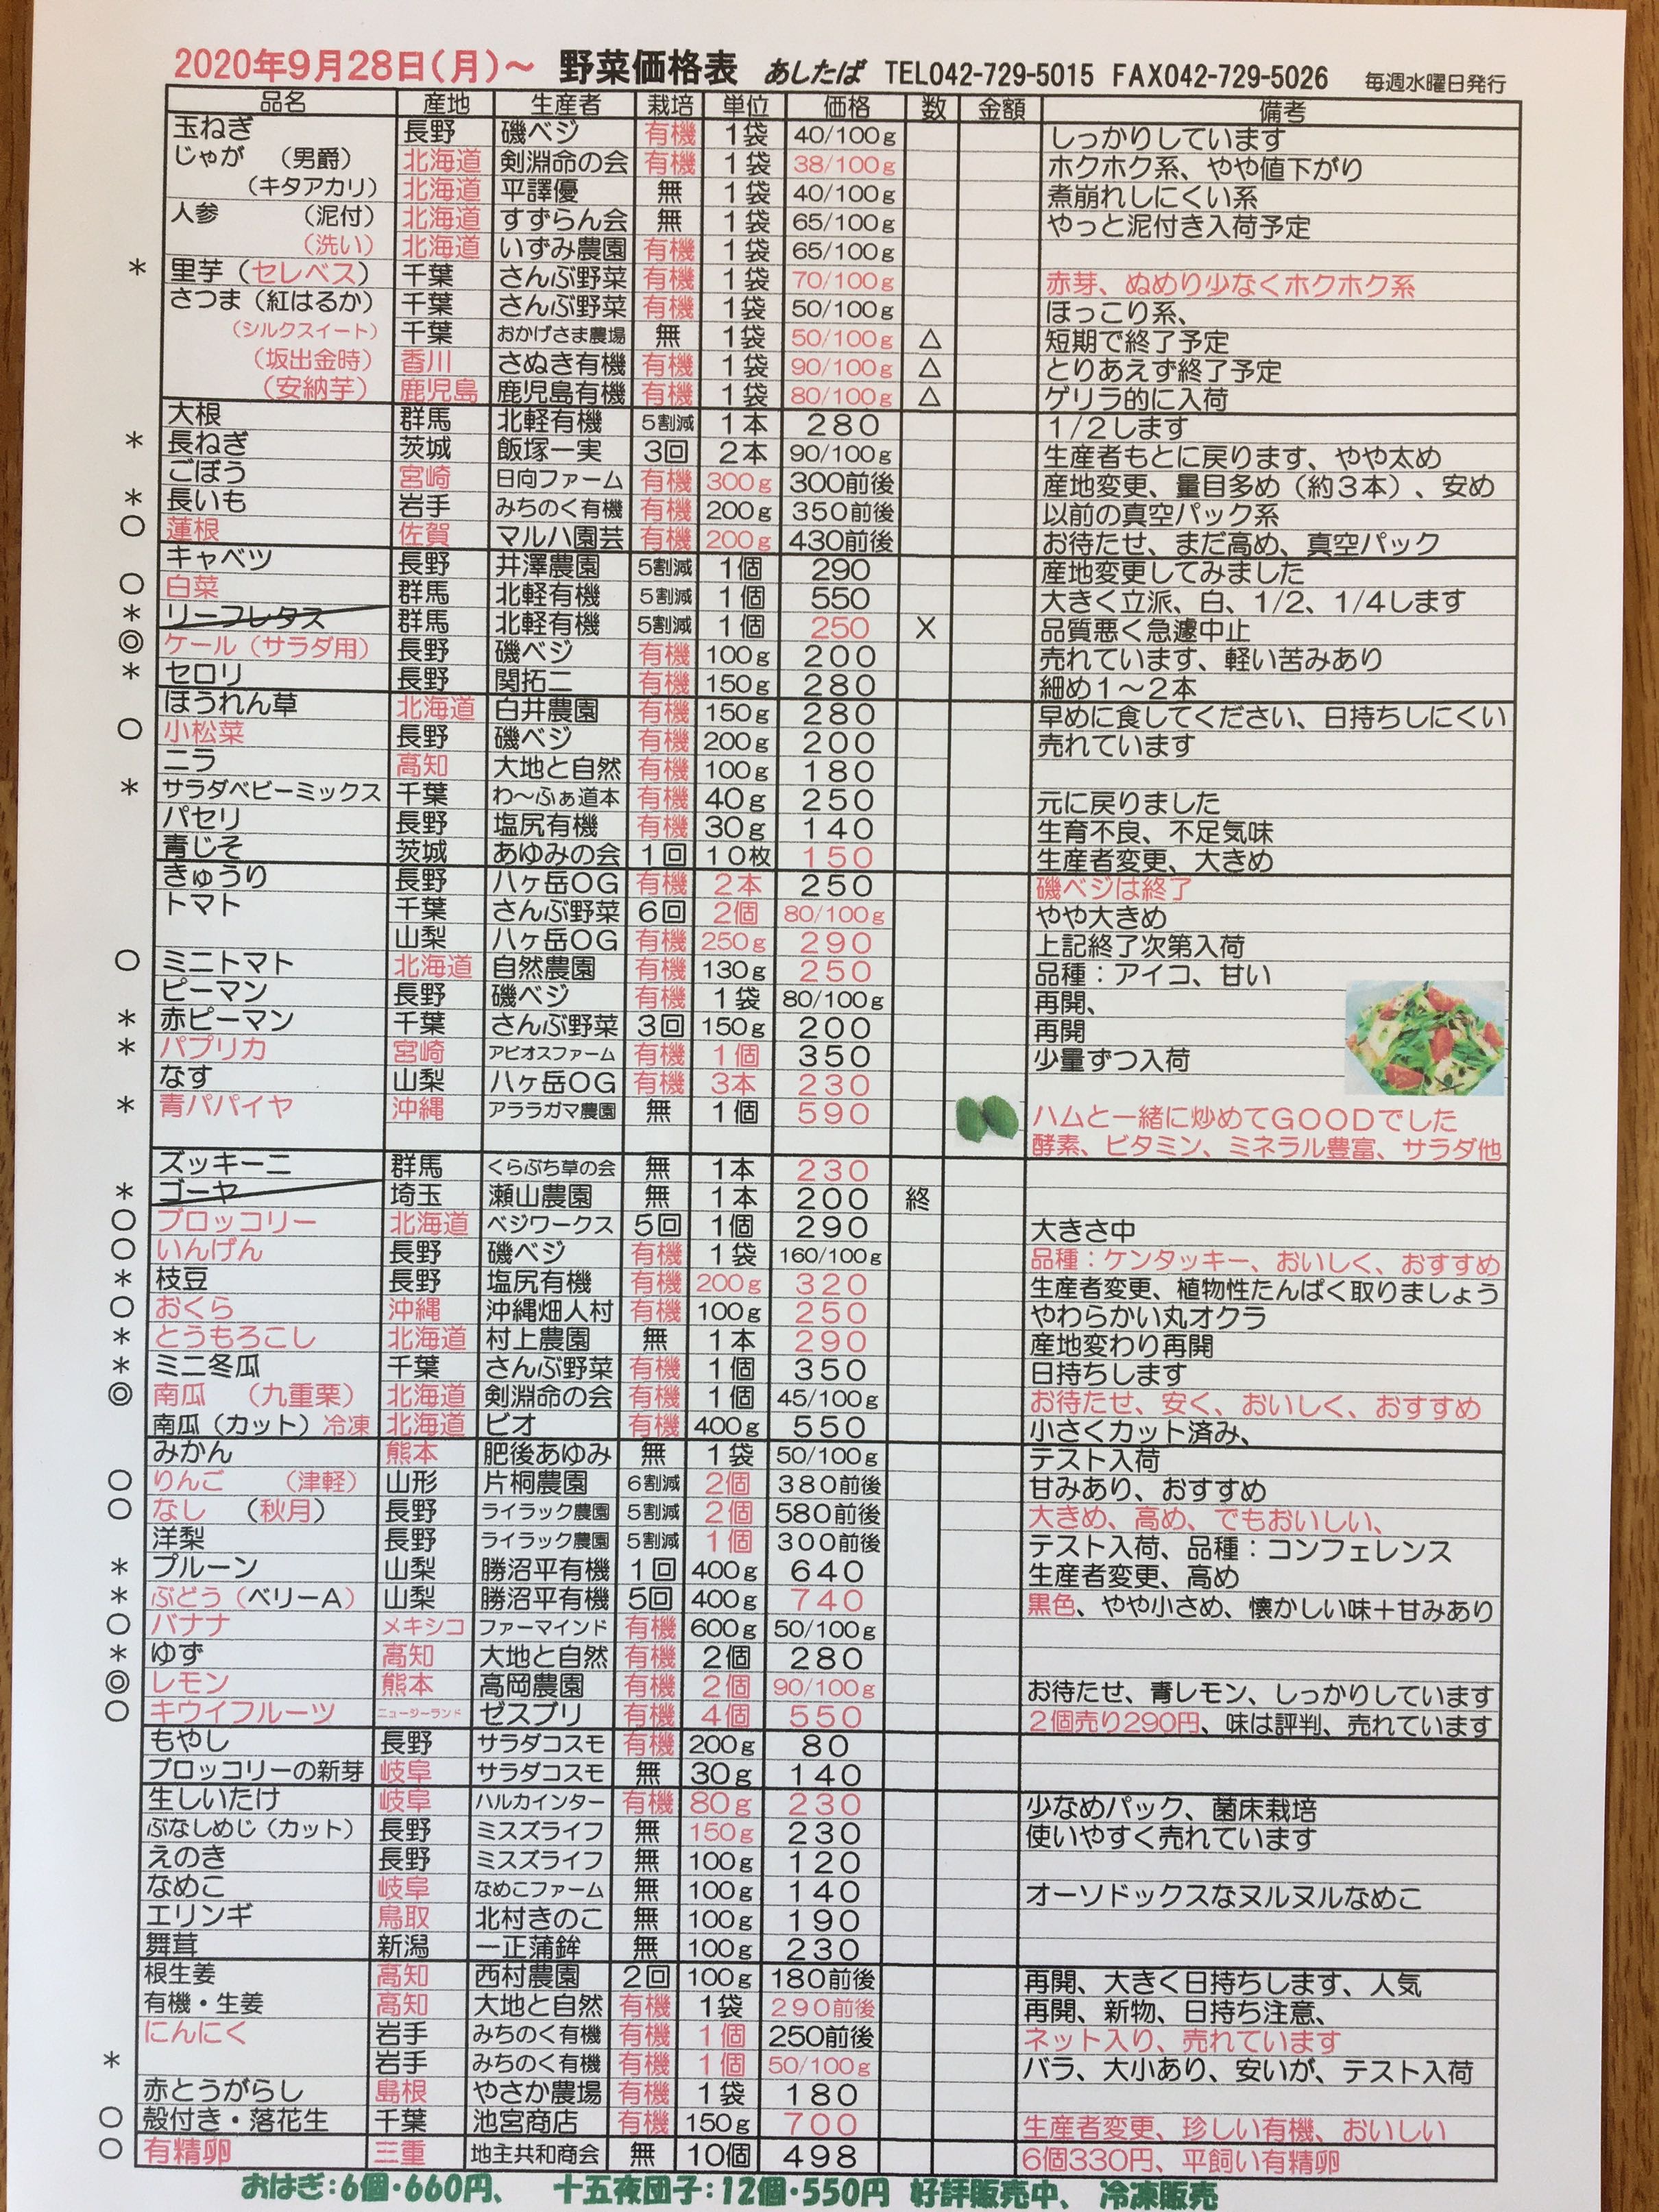 2020年9月28日(月)～ 野菜価格表 あしたば TEL042-729-5015 FAX042-729-5026 毎週水曜日発行
品名 産地 生産者 栽培 単位 価格 数 金額 備考
玉ねぎ 長野 磯ベジ 有機 1袋 40/100g しっかりしています
じゃが （男爵） 北海道 剣淵命の会 有機 1袋 38/100g ホクホク系、やや値下がり
（キタアカリ） 北海道 平譯優 無 1袋 40/100g 煮崩れしにくい系
人参 （泥付） 北海道 すずらん会 無 1袋 65/100g やっと泥付き入荷予定
（洗い） 北海道 いずみ農園 有機 1袋 65/100g
* 里芋（セレベス） 千葉 さんぶ野菜 有機 1袋 70/100g 赤芽、ぬめり少なくホクホク系
さつま（紅はるか） 千葉 さんぶ野菜 有機 1袋 50/100g ほっこり系、
（シルクスイート） 千葉 おかげさま農場 無 1袋 50/100g △ 短期で終了予定
（坂出金時） 香川 さぬき有機 有機 1袋 90/100g △ とりあえず終了予定
（安納芋） 鹿児島 鹿児島有機 有機 1袋 80/100g △ ゲリラ的に入荷
大根 群馬 北軽有機 5割減 1本 280 1/2します
* 長ねぎ 茨城 飯塚一実 3回 2本 90/100g 生産者もとに戻ります、やや太め
ごぼう 宮崎 日向ファーム 有機 300g 300前後 産地変更、量目多め（約3本）、安め
* 長いも 岩手 みちのく有機 有機 200g 350前後 以前の真空パック系
○ 蓮根 佐賀 マルハ園芸 有機 200g 430前後 お待たせ、まだ高め、真空パック
キャベツ 長野 井澤農園 5割減 1個 290 産地変更してみました
○ 白菜 群馬 北軽有機 5割減 1個 550 大きく立派、白、1/2、1/4します
* リーフレタス 群馬 北軽有機 5割減 1個 250 X 品質悪く急遽中止
◎ ケール（サラダ用） 長野 磯ベジ 有機 100g 200 売れています、軽い苦みあり
* セロリ 長野 関拓二 有機 150g 280 細め1～2本
ほうれん草 北海道 白井農園 有機 150g 280 早めに食してください、日持ちしにくい
○ 小松菜 長野 磯ベジ 有機 200g 200 売れています
ニラ 高知 大地と自然 有機 100g 180
* サラダベビーミックス 千葉 わ～ふぁ道本 有機 40g 250 元に戻りました
パセリ 長野 塩尻有機 有機 30g 140 生育不良、不足気味
青じそ 茨城 あゆみの会 1回 10枚 150 生産者変更、大きめ
きゅうり 長野 八ヶ岳OG 有機 2本 250 磯ベジは終了
トマト 千葉 さんぶ野菜 6回 2個 80/100g やや大きめ
山梨 八ヶ岳OG 有機 250g 290 上記終了次第入荷
○ ミニトマト 北海道 自然農園 有機 130g 250 品種：アイコ、甘い
ピーマン 長野 磯ベジ 有機 1袋 80/100g 再開、
* 赤ピーマン 千葉 さんぶ野菜 3回 150g 200 再開
* パプリカ 宮崎 アピオスファーム 有機 1個 350 少量ずつ入荷
なす 山梨 八ヶ岳OG 有機 3本 230
* 青パパイヤ 沖縄 アララガマ農園 無 1個 590 ハムと一緒に炒めてGOODでした
酵素、ビタミン、ミネラル豊富、サラダ他
ズッキーニ 群馬 くらぶち草の会 無 1本 230
* ゴーヤ 埼玉 瀬山農園 無 1本 200 終
○ ブロッコリー 北海道 ベジワークス 5回 1個 290 大きさ中
○ いんげん 長野 磯ベジ 有機 1袋 160/100g 品種：ケンタッキー、おいしく、おすすめ
* 枝豆 長野 塩尻有機 有機 200g 320 生産者変更、植物性たんぱく取りましょう
○ おくら 沖縄 沖縄畑人村 有機 100g 250 やわらかい丸オクラ
* とうもろこし 北海道 村上農園 無 1本 290 産地変わり再開
* ミニ冬瓜 千葉 さんぶ野菜 有機 1個 350 日持ちします
◎ 南瓜 （九重栗） 北海道 剣淵命の会 有機 1個 45/100g お待たせ、安く、おいしく、おすすめ
南瓜（カット）冷凍 北海道 ビオ 有機 400g 550 小さくカット済み、
みかん 熊本 肥後あゆみ 無 1袋 50/100g テスト入荷
○ りんご （津軽） 山形 片桐農園 6割減 2個 380前後 甘みあり、おすすめ
○ なし （秋月） 長野 ライラック農園 5割減 2個 580前後 大きめ、高め、でもおいしい、
洋梨 長野 ライラック農園 5割減 1個 300前後 テスト入荷、品種：コンフェレンス
* プルーン 山梨 勝沼平有機 1回 400g 640 生産者変更、高め
* ぶどう（ベリーA） 山梨 勝沼平有機 5回 400g 740 黒色、やや小さめ、懐かしい味＋甘みあり
○ バナナ メキシコ ファーマインド 有機 600g 50/100g
* ゆず 高知 大地と自然 有機 2個 280
◎ レモン 熊本 高岡農園 有機 2個 90/100g お待たせ、青レモン、しっかりしています
○ キウイフルーツ ニュージーランド ゼスプリ 有機 4個 550 2個売り290円、味は評判、売れています
もやし 長野 サラダコスモ 有機 200g 80
ブロッコリーの新芽 岐阜 サラダコスモ 無 30g 140
生しいたけ 岐阜 ハルカインター 有機 80g 230 少なめパック、菌床栽培
ぶなしめじ（カット） 長野 ミスズライフ 無 150g 230 使いやすく売れています
えのき 長野 ミスズライフ 無 100g 120
なめこ 岐阜 なめこファーム 無 100g 140 オーソドックスなヌルヌルなめこ
エリンギ 鳥取 北村きのこ 無 100g 190
舞茸 新潟 一正蒲鉾 無 100g 230
根生姜 高知 西村農園 2回 100g 180前後 再開、大きく日持ちします、人気
有機・生姜 高知 大地と自然 有機 1袋 290前後 再開、新物、日持ち注意、
にんにく 岩手 みちのく有機 有機 1個 250前後 ネット入り、売れています
* 岩手 みちのく有機 有機 1個 50/100g バラ、大小あり、安いが、テスト入荷
赤とうがらし 島根 やさか農場 有機 1袋 180
○ 殻付き・落花生 千葉 池宮商店 有機 150g 700 生産者変更、珍しい有機、おいしい
○ 有精卵 三重 地主共和商会 無 10個 498 6個330円、平飼い有精卵
おはぎ：6個・660円、 十五夜団子：12個・550円 好評販売中、 冷凍販売